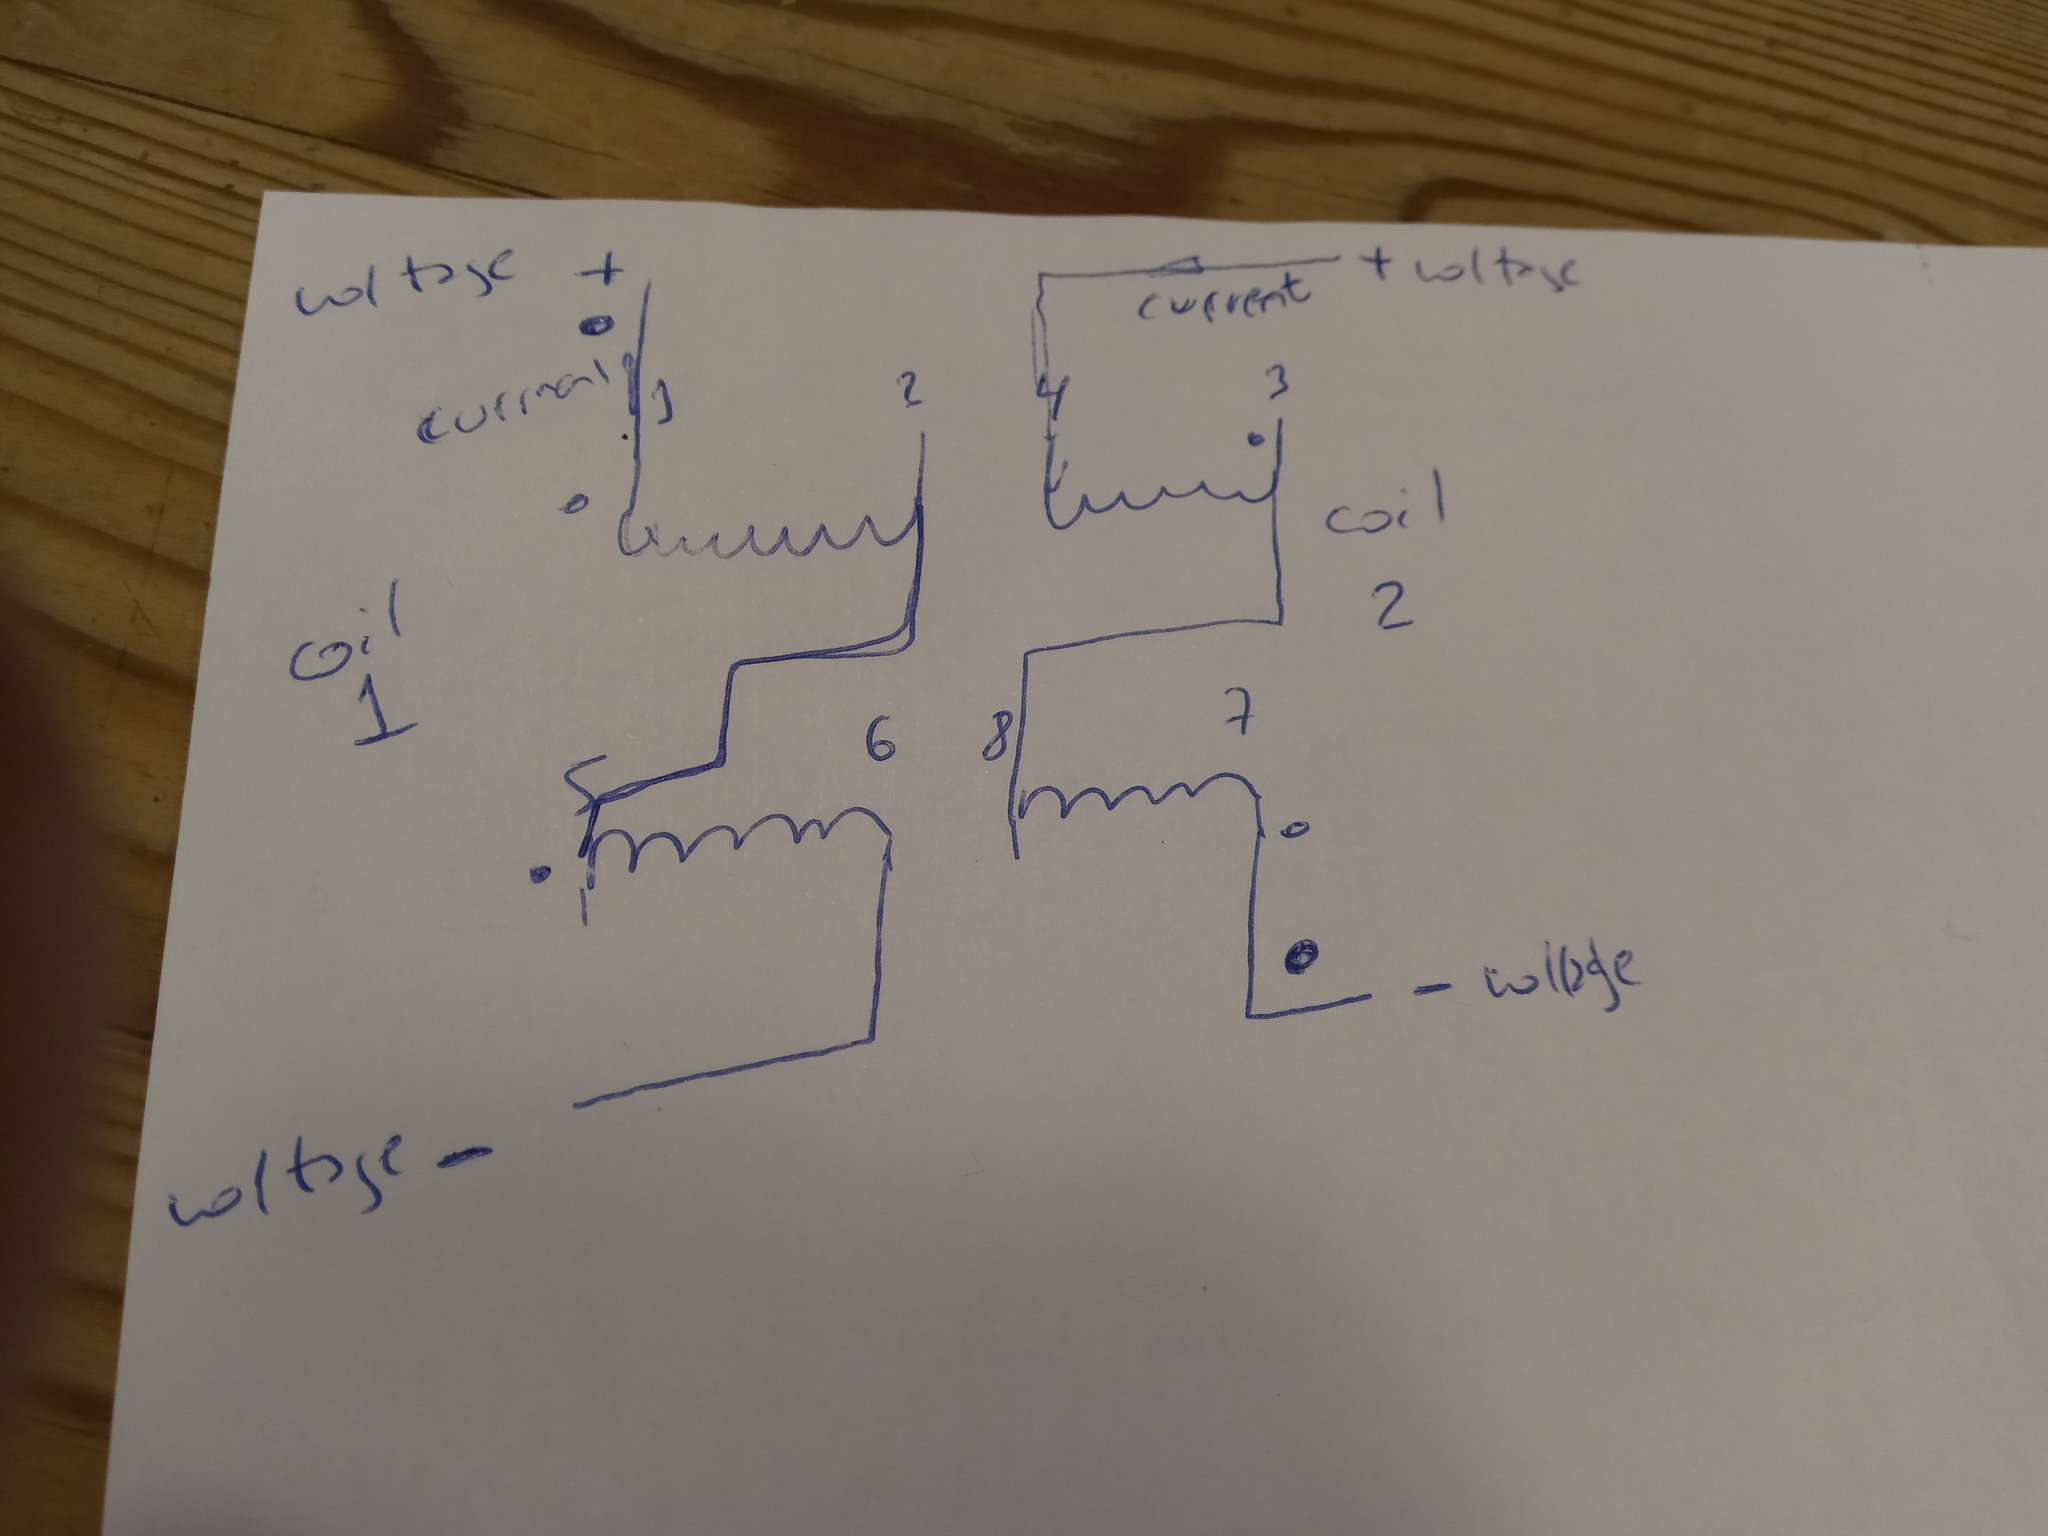 voltage +
+ voltage
current
current
1
2
4
3
coil
2
coil
1
5
6
8
7
- voltage
voltage -